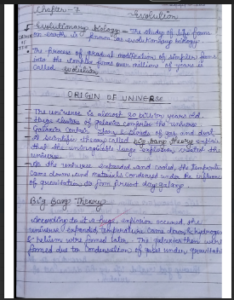 Chapter-7
Evolution
Evolutionary biology - The study of life forms
on earth is known as evolutionary biology
The process of gradual modification of simpler form
into the complex form over millions of years is
called evolution
ORIGIN OF UNIVERSE
The universe is almost 20 billion years old
Huge clusters of galaxies comprise the universe
Galaxies contain stars & clouds of gas and dust
A scientific theory called big bang theory explain
that the universe huge explosion created the
universe
As the universe expanded and cooled the temperature
came down and materials condensed under the influence
of gravitation to form present day galaxy
Big Bang Theory
According to it a huge explosion occured the
universe expanded temperature came down & hydrogen
& helium were formed later. The galaxies then were
formed due to condensation of gases under gravitation